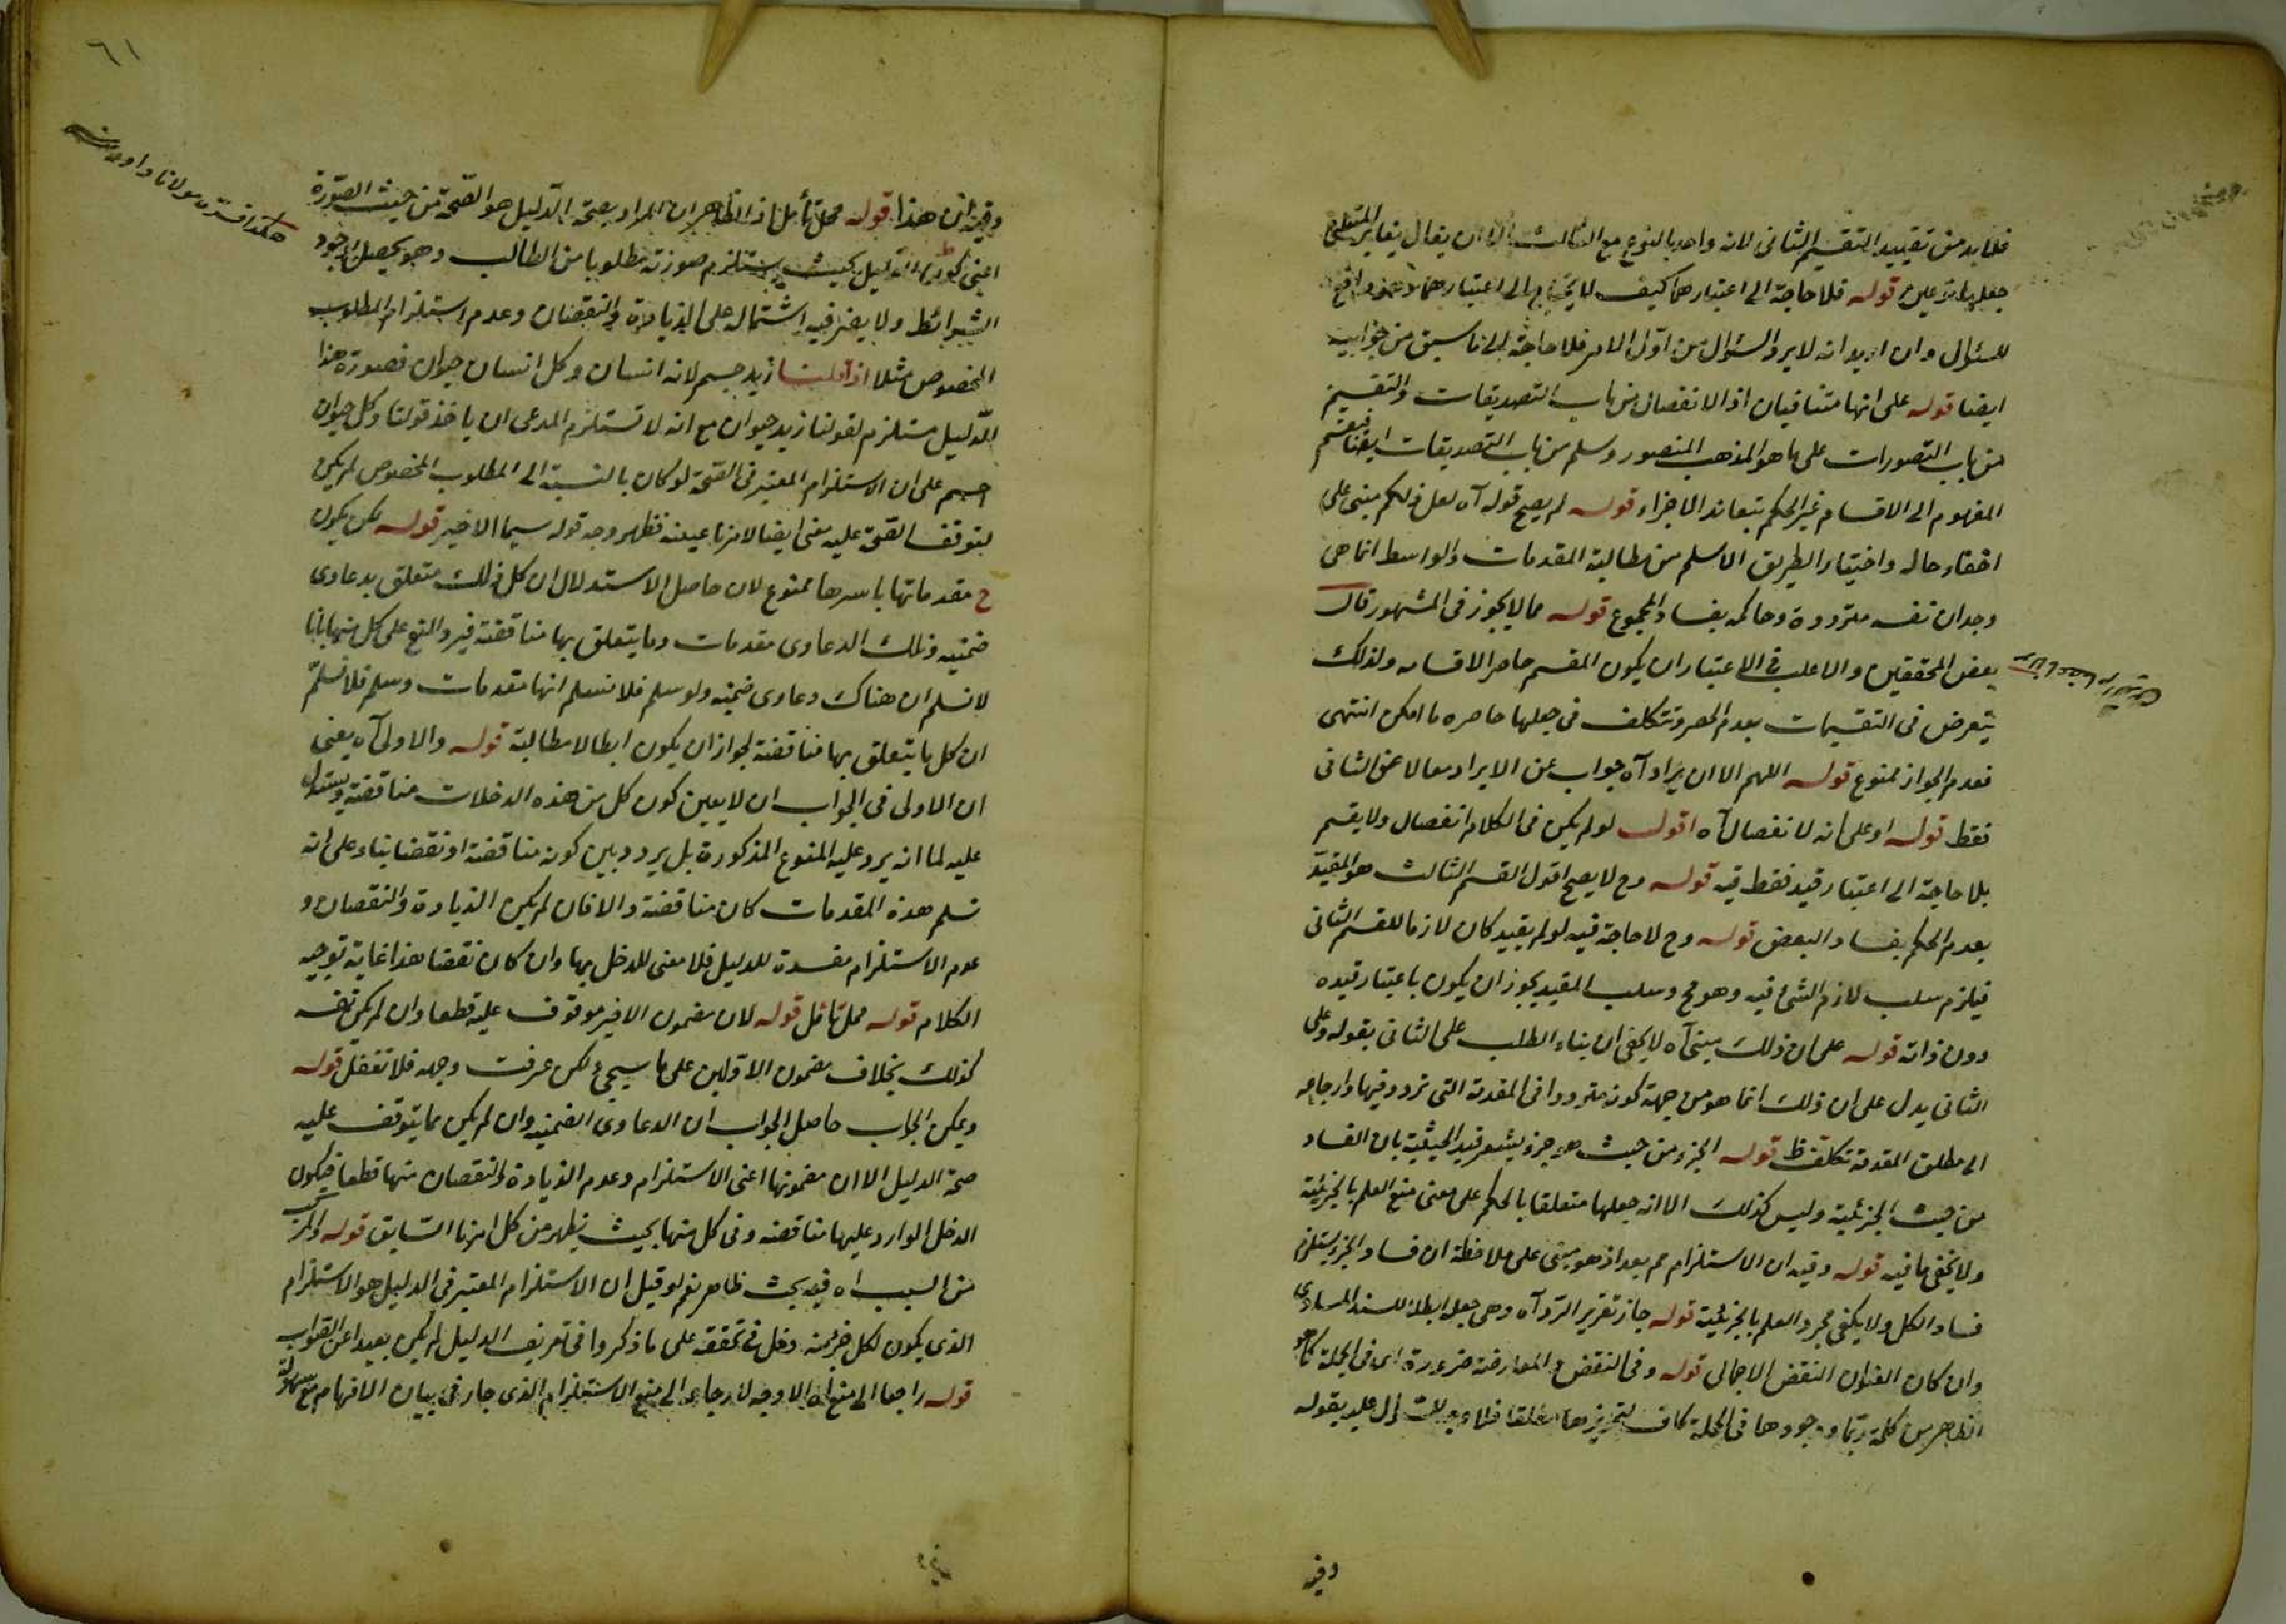 فلابد من تقييد التقسيم الثانى لانه واحد بالنوع مع الثالث الا ان يقال يتغاير المتعلق
قوله فلا حاجة الى اعتبارهما كيف لا يحتاج الى اعتبارهما
للسئوال وان اريد انه لا يرد السئوال من اول الامر فلا حاجة الى ما سبق من جوابيه
ايضا قوله على انهما متنافيان اذ الانفصال من باب التصديقات والتقسيم
من باب التصورات على ما هو المذهب المنصور وسلم من باب التصديقات ايضا فتقسيم
المفهوم الى الاقسام غير الحكم بتعاند الاجزاء قوله لم يصح قوله آه لعل ذلكم مبنى على
اخفاء حاله واختيار الطريق الاسلم من مطالبة المقدمات والواسط انما هى
وجدان نفسه مترددة وحاكمه بفساد المجموع قوله مما لا يجوز فى المشهور قال
بعض المحققين والاغلب فى الاعتبار ان يكون المقسم حاصر الاقسامه ولذلك
يتعرض فى التقسيمات بعدم الحصر وتتكلف فى جعلها حاصره ما امكن انتهى
فعدم الجواز ممنوع قوله اللهم الا ان يراد آه جواب عن الايراد معا لا عن الثانى
فقط قوله او على انه لا نفصال آه اقول لو لم يكن فى الكلام انفصال ولا يقسم
بلا حاجة الى اعتبار قيد فقط فيه قوله وح لا يصح اقول القسم الثالث هو المقيد
بعدم الحكم بفساد البعض قوله وح لا حاجة فيه لو لم يقيد كان لازما للقسم الثانى
فيلزم سلب لازم الشئ فيه وهو مح وسلب المقيد يجوز ان يكون باعتبار قيده
دون ذاته قوله على ان ذلك مبنى آه لا يخفى ان بناء الطلب على الثانى بقوله وعلى
الثانى يدل على ان ذلك انما هو من جهة كونه مترددا فى المقدمة التى تردد فيها وارجاعه
الى مطلق المقدمة تكلف ظ قوله الجزء من حيث هو جزء يشعر قيد الحيثية بان الفساد
من حيث الجزئية وليس كذلك الا انه جعلها متعلقا بالحكم على معنى منع العلم بالجزئية
ولا يخفى ما فيه قوله وفيه ان الاستلزام مم بعد اذ هو مبنى على ملاحظة ان فساد الجزء يستلزم
فساد الكل ولا يكفى مجرد العلم بالجزئية قوله جاز تقرير الرد آه وهى جعل ابطالا للسند المساوى
وان كان العنوان النقض الاجمالى قوله وفى النقض والمعارضة ضرورة اى فى الجملة كما هو
الظاهر من كلمة ربما ووجودها فى الجملة كاف
وفيه
٦١
وفيه ان هذا قوله محل تأمل اذ الظاهر ان المراد بصحة الدليل هو الصحة من حيث الصورة
اعنى كون الدليل بحيث يستلزم صورته مطلوبا من الطالب وهو يحصل بوجود
الشرائط ولا يضر فيه اشتماله على الزيادة والنقصان وعدم استلزام المطلوب
المخصوص مثلا اذا قلنا زيد جسم لانه انسان وكل انسان حيوان فصورة هذا
الدليل مستلزم لقولنا زيد حيوان مع انه لا تستلزم المدعى ان ياخذ قولنا وكل حيوان
جسم على ان الاستلزام المعتبر فى الصحة لو كان بالنسبة الى المطلوب المخصوص لم يكن
لتوقف الصحة عليه معنى ايضا لانها عينه فظهر وجه قوله سيما الاخير قوله لكن يكون
ح مقدماتها باسرها ممنوع لان حاصل الاستدلال ان كل ذلك متعلق بدعاوى
ضمنيه وتلك الدعاوى مقدمات وما يتعلق بها مناقضة فيرد المنع على كل منها بانا
لا نسلم ان هناك دعاوى ضمنيه ولو سلم فلا نسلم انها مقدمات وسلم فلا نسلم
ان كل ما يتعلق بها مناقضة لجواز ان يكون ابطالا لا مطالبة قوله والاولى آه يعنى
ان الاولى فى الجواب ان لا يعين كون كل من هذه الدخلات مناقضة ويستدل
عليه لما انه يرد عليه المنوع المذكورة بل يردد بين كونه مناقضة او نقضا بناء على انه
تسلم هذه المقدمات كان مناقضة والا فان لم يكن الزيادة والنقصان و
عدم الاستلزام مفسدة للدليل فلا معنى للدخل بها وان كان نقضا هذا غاية توجيه
الكلام قوله محل تأمل قوله لان مضمون الاخير موقوف عليه قطعا وان لم يكن نفسه
كذلك بخلاف مضمون الاولين على ما سيجئ لكن عرفت وجهه فلا تغفل قوله
ويمكن الجواب حاصل الجواب ان الدعاوى الضمنيه وان لم يكن مما يتوقف عليه
صحة الدليل الا ان مضمونها اعنى الاستلزام وعدم الزيادة والنقصان منها قطعا فيكون
الدخل الوارد عليها مناقضة وفى كل منها بحيث يظهر من كلامنا السابق قوله والمركب
من السبب اه فيه بحث ظاهر نعم لو قيل ان الاستلزام المعتبر فى الدليل هو الاستلزام
الذى يكون لكل جزء منه دخل فى تحققه على ما ذكروا فى تعريف الدليل لم يكن بعيدا عن الصواب
قوله راجعا الى منع آه الاوجه لارجاعه الى منع الاستلزام الذى جار فى بيان الافهام مع